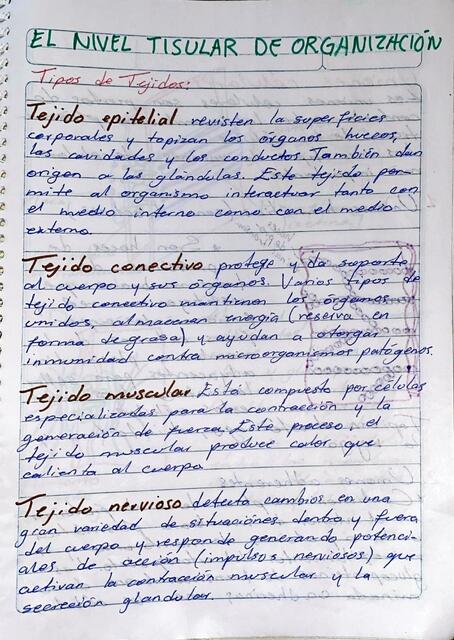 EL NIVEL TISULAR DE ORGANIZACIÓN
Tipos de Tejidos:
Tejido epitelial revisten la superficies
corporales y topizan los órganos huecos,
las cavidades y los conductos. También dan
origen a las glándulas. Este tejido per-
mite al organismo interactuar tanto con
el medio interno como con el medio
externo.
Tejido conectivo protege y da soporte
al cuerpo y sus órganos. Varios tipos de
tejido conectivo mantienen los órganos
unidos, almacenan energía (reserva en
forma de grasa) y ayudan a otorgar
inmunidad contra microorganismos patógenos.
Tejido muscular Esta compuesto por células
especializadas para la contracción y la
generación de fuerza. Este proceso, el
tejido muscular produce calor que
calienta al cuerpo
Tejido nervioso detecta cambios en una
gran variedad de situaciónes dentro y fuera
del cuerpo y responde generando potenci-
ales de acción (impulsos nerviosos) que
activan la contracción muscular y la
secrección glandular.